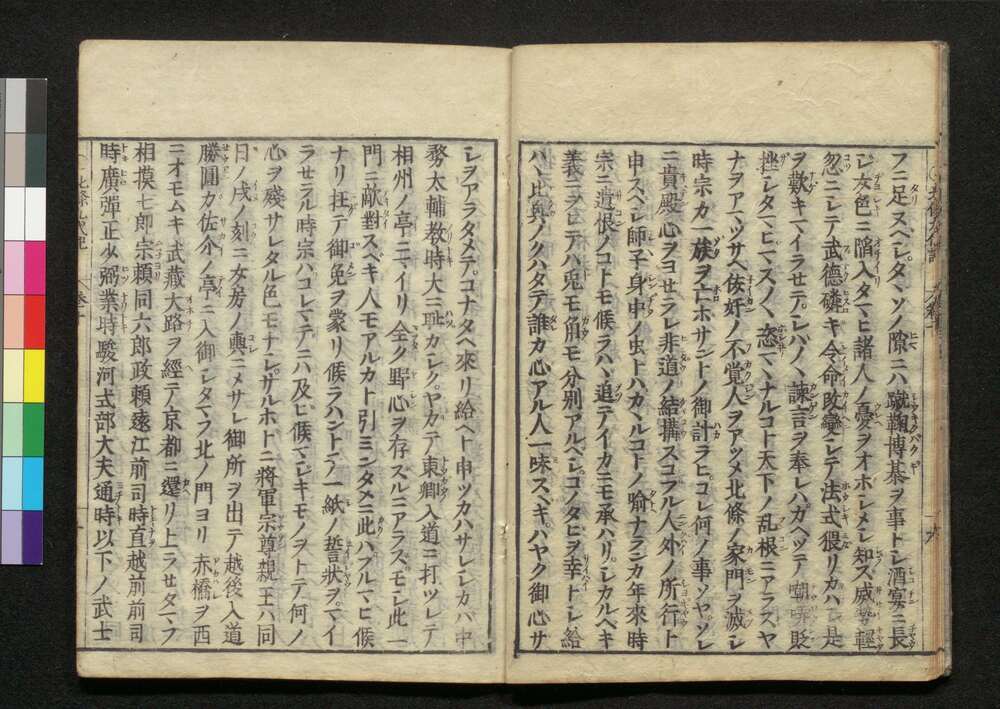 フニ足ヌベシ。タマ〱ノ隙ニハ蹴鞠博棊ヲ事トシ酒宴ニ長
シ女色ニ陥入タマヒ諸人ノ憂ヲオホシメシ知ズ威勢輕
忽ニシテ武德磷キ令命改變シテ法式猥リカハシ是
ヲ歎キマイラセテシハ〱諫言ヲ奉レハカヘツテ嘲哢貶
挫シタマヒマス〱恣マヽナルコト天下ノ乱根ニアラスヤ
ナヲアマツサヘ佞奸ノ不覚人ヲアツメ北條ノ家門ヲ滅シ
時宗カ一族ヲ亡ホサントノ御計ラヒコレ何ノ事ソヤシ
ニ貴殿心ヲヨセラレ非道ノ結搆スコフル人外ノ所行ト
申スヘシ師子身中ノ虫トハカヽルコトノ喩ナランカ年來時
宗ニ遺恨ノコトモ候ラハヽ追テイカニモ承ハリ。シカルヘキ
義ニヲヒテハ兎モ角モ分別アルヘシ。コノタヒヲ幸トシ給
ハヽ比興ノクハタテ誰カ心アル人一味スヘキ。ハヤク御心サ
シヲアラタメテ。コナタヘ來リ給ヘト申ツカハサレシカバ中
務太輔教時大ニ耻カシク。ヤカテ東卿入道ニ打ツレテ
相州ノ亭ニマイリ全ク野心ヲ存ズルニアラズモシ此一
門ニ敵對スベキ人モアルカト引ミンタメニ此ハフルマヒ候
ナリ。抂テ御免ヲ蒙リ候ラハントテ一紙ノ誓狀ヲマイ
ラせラル時宗ハコレマテニハ及ヒ候マシキモノヲトテ何ノ
心ヲ殘サレタル色モナシ。サルホトニ將軍宗尊親王ハ同
日ノ戌ノ刻ニ女房ノ輿ニメサレ御所ヲ出テ越後入道
勝圓カ佐介ノ亭ニ入御シタマフ北ノ門ヨリ赤橋ヲ西
ニオモムキ武藏大路ヲ經テ京都ニ還リ上ラせタマフ
相摸七郎宗頼同六郎政頼遠江前司時直越前前司
時廣彈正少弼業時駿河式部大夫通時以下ノ武士